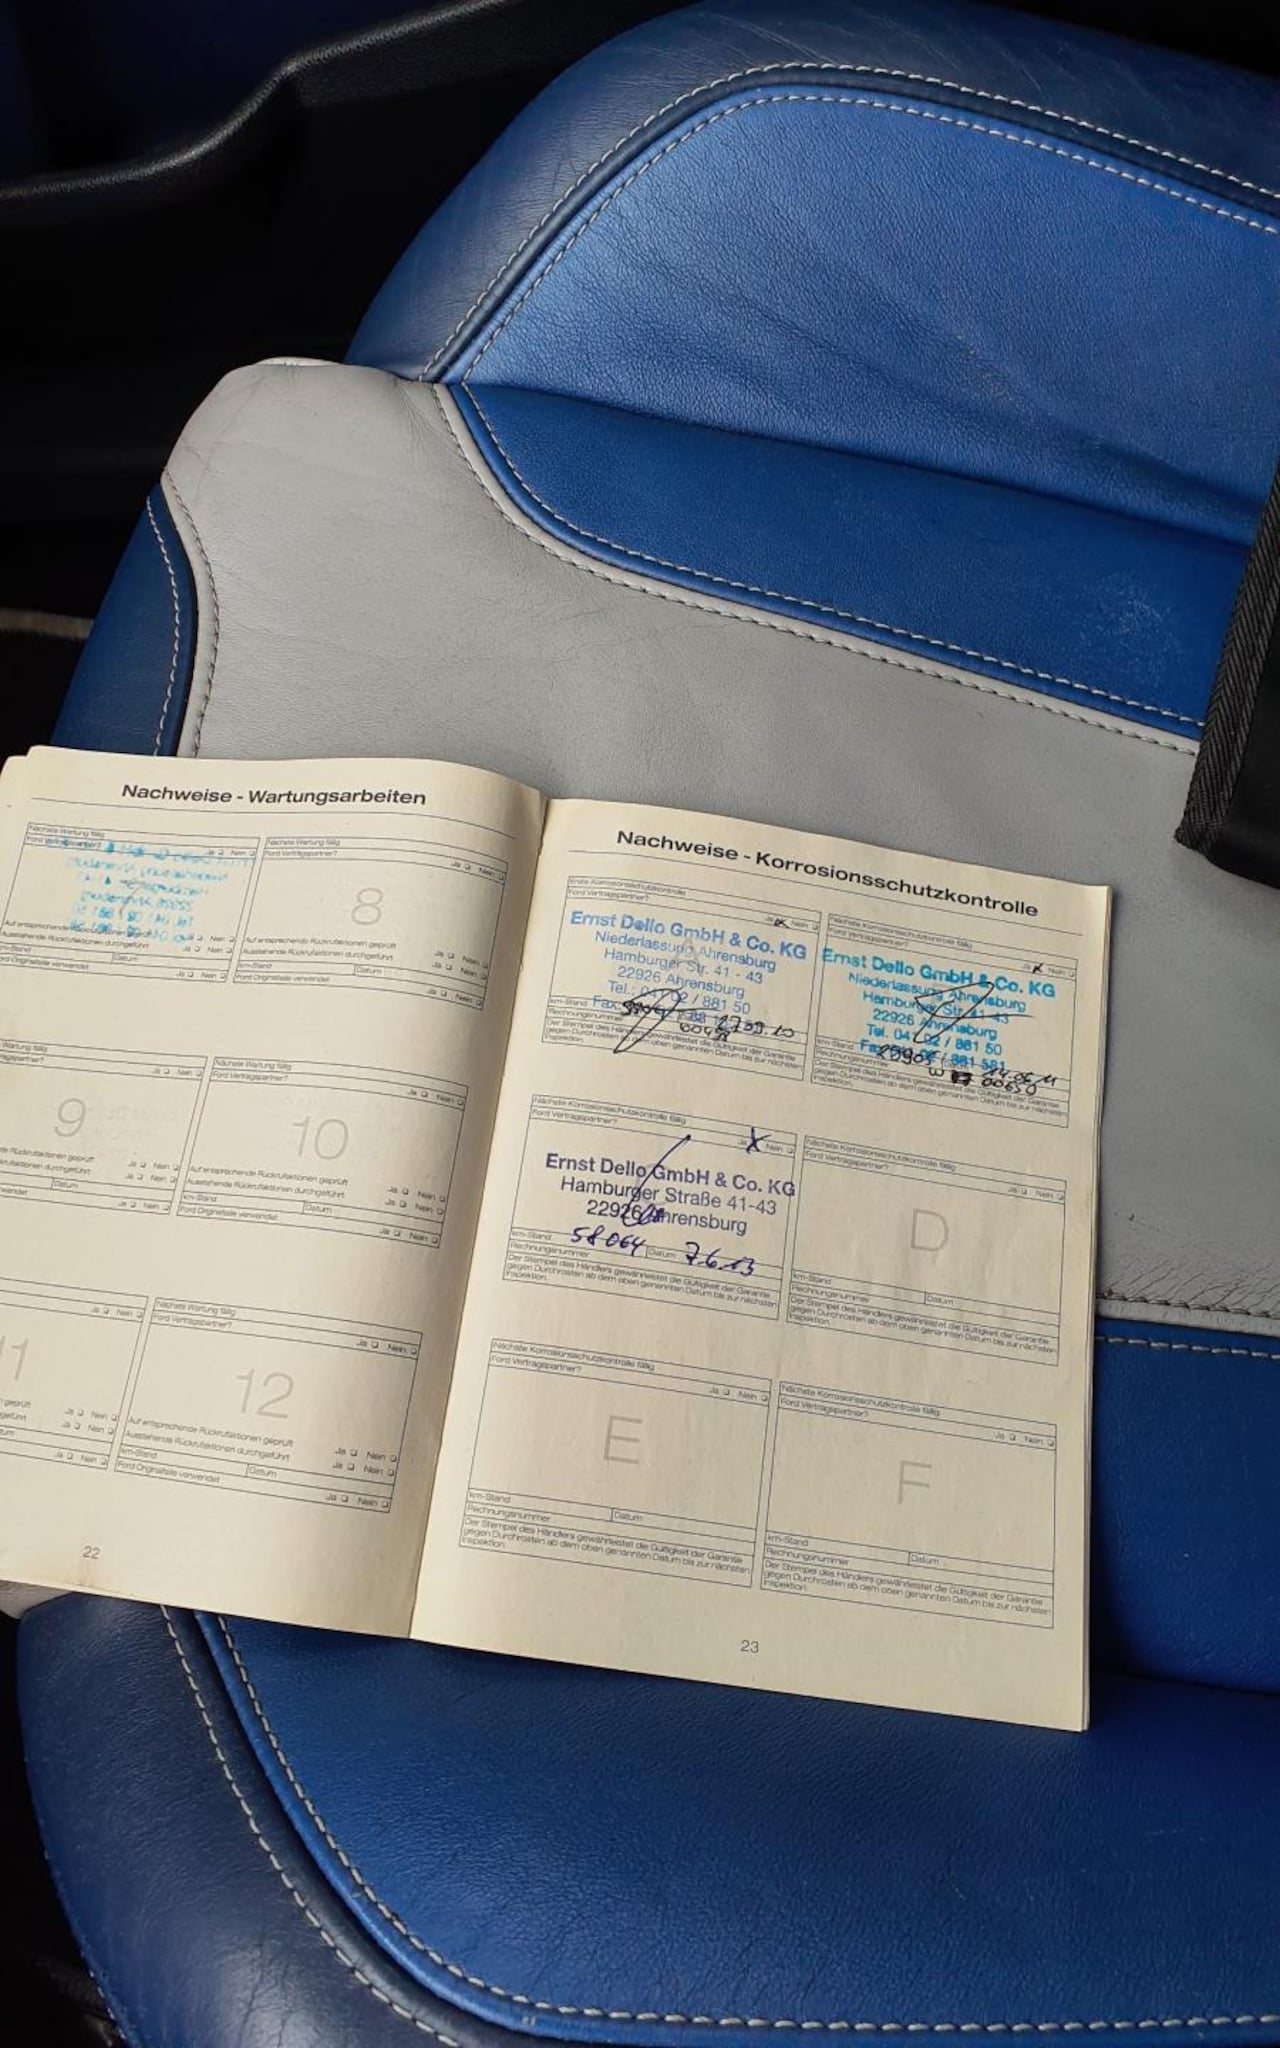 Nachweise - Wartungsarbeiten
Nächste Wartung fällig
Ford Vertragspartner?
Ja Nein
Auf entsprechende Rückrufaktionen geprüft
Ausstehende Rückrufaktionen durchgeführt
Ja Nein
Ja Nein
km-Stand Datum
Ford Originalteile verwendet
Ja Nein
Nächste Wartung fällig
Ford Vertragspartner?
Ja Nein
8
Auf entsprechende Rückrufaktionen geprüft
Ja Nein
Ausstehende Rückrufaktionen durchgeführt
Ja Nein
km-Stand Datum
Ford Originalteile verwendet
Ja Nein
Ja Nein
9
Rückrufaktionen geprüft
Ja Nein
Rückrufaktionen durchgeführt
Ja Nein
Datum
Ja Nein
Nächste Wartung fällig
Ford Vertragspartner?
Ja Nein
10
Auf entsprechende Rückrufaktionen geprüft
Ja Nein
Ausstehende Rückrufaktionen durchgeführt
Ja Nein
km-Stand Datum
Ford Originalteile verwendet
Ja Nein
Ja Nein
11
geprüft
Ja Nein
Ja Nein
Ja Nein
Nächste Wartung fällig
Ford Vertragspartner?
Ja Nein
12
Auf entsprechende Rückrufaktionen geprüft
Ja Nein
Ausstehende Rückrufaktionen durchgeführt
Ja Nein
km-Stand Datum
Ford Originalteile verwendet
Ja Nein
22
Nachweise - Korrosionsschutzkontrolle
Erste Korrosionsschutzkontrolle
Ford Vertragspartner?
Ja Nein
A
Ernst Dello GmbH & Co. KG
Niederlassung Ahrensburg
Hamburger Str. 41 - 43
22926 Ahrensburg
Tel.: 04102 / 881 50
km-Stand
Rechnungsnummer
Der Stempel des Händlers gewährleistet die Gültigkeit der Garantie
gegen Durchrosten ab dem oben genannten Datum bis zur nächsten
Inspektion.
Nächste Korrosionsschutzkontrolle fällig
Ford Vertragspartner?
Ja Nein
Ernst Dello GmbH & Co. KG
Niederlassung Ahrensburg
Hamburger Str. 41-43
22926 Ahrensburg
Tel. 04102 / 881 50
km-Stand
Rechnungsnummer
Der Stempel des Händlers gewährleistet die Gültigkeit der Garantie
gegen Durchrosten ab dem oben genannten Datum bis zur nächsten
Inspektion.
Nächste Korrosionsschutzkontrolle fällig
Ford Vertragspartner?
Ja Nein
Ernst Dello GmbH & Co. KG
Hamburger Straße 41-43
22926 Ahrensburg
km-Stand 58064 Datum 7.6.13
Rechnungsnummer
Der Stempel des Händlers gewährleistet die Gültigkeit der Garantie
gegen Durchrosten ab dem oben genannten Datum bis zur nächsten
Inspektion.
Nächste Korrosionsschutzkontrolle fällig
Ford Vertragspartner?
Ja Nein
D
km-Stand
Rechnungsnummer Datum
Der Stempel des Händlers gewährleistet die Gültigkeit der Garantie
gegen Durchrosten ab dem oben genannten Datum bis zur nächsten
Inspektion.
Nächste Korrosionsschutzkontrolle fällig
Ford Vertragspartner?
Ja Nein
E
km-Stand
Rechnungsnummer Datum
Der Stempel des Händlers gewährleistet die Gültigkeit der Garantie
gegen Durchrosten ab dem oben genannten Datum bis zur nächsten
Inspektion.
Nächste Korrosionsschutzkontrolle fällig
Ford Vertragspartner?
Ja Nein
F
km-Stand
Rechnungsnummer Datum
Der Stempel des Händlers gewährleistet die Gültigkeit der Garantie
gegen Durchrosten ab dem oben genannten Datum bis zur nächsten
Inspektion.
23